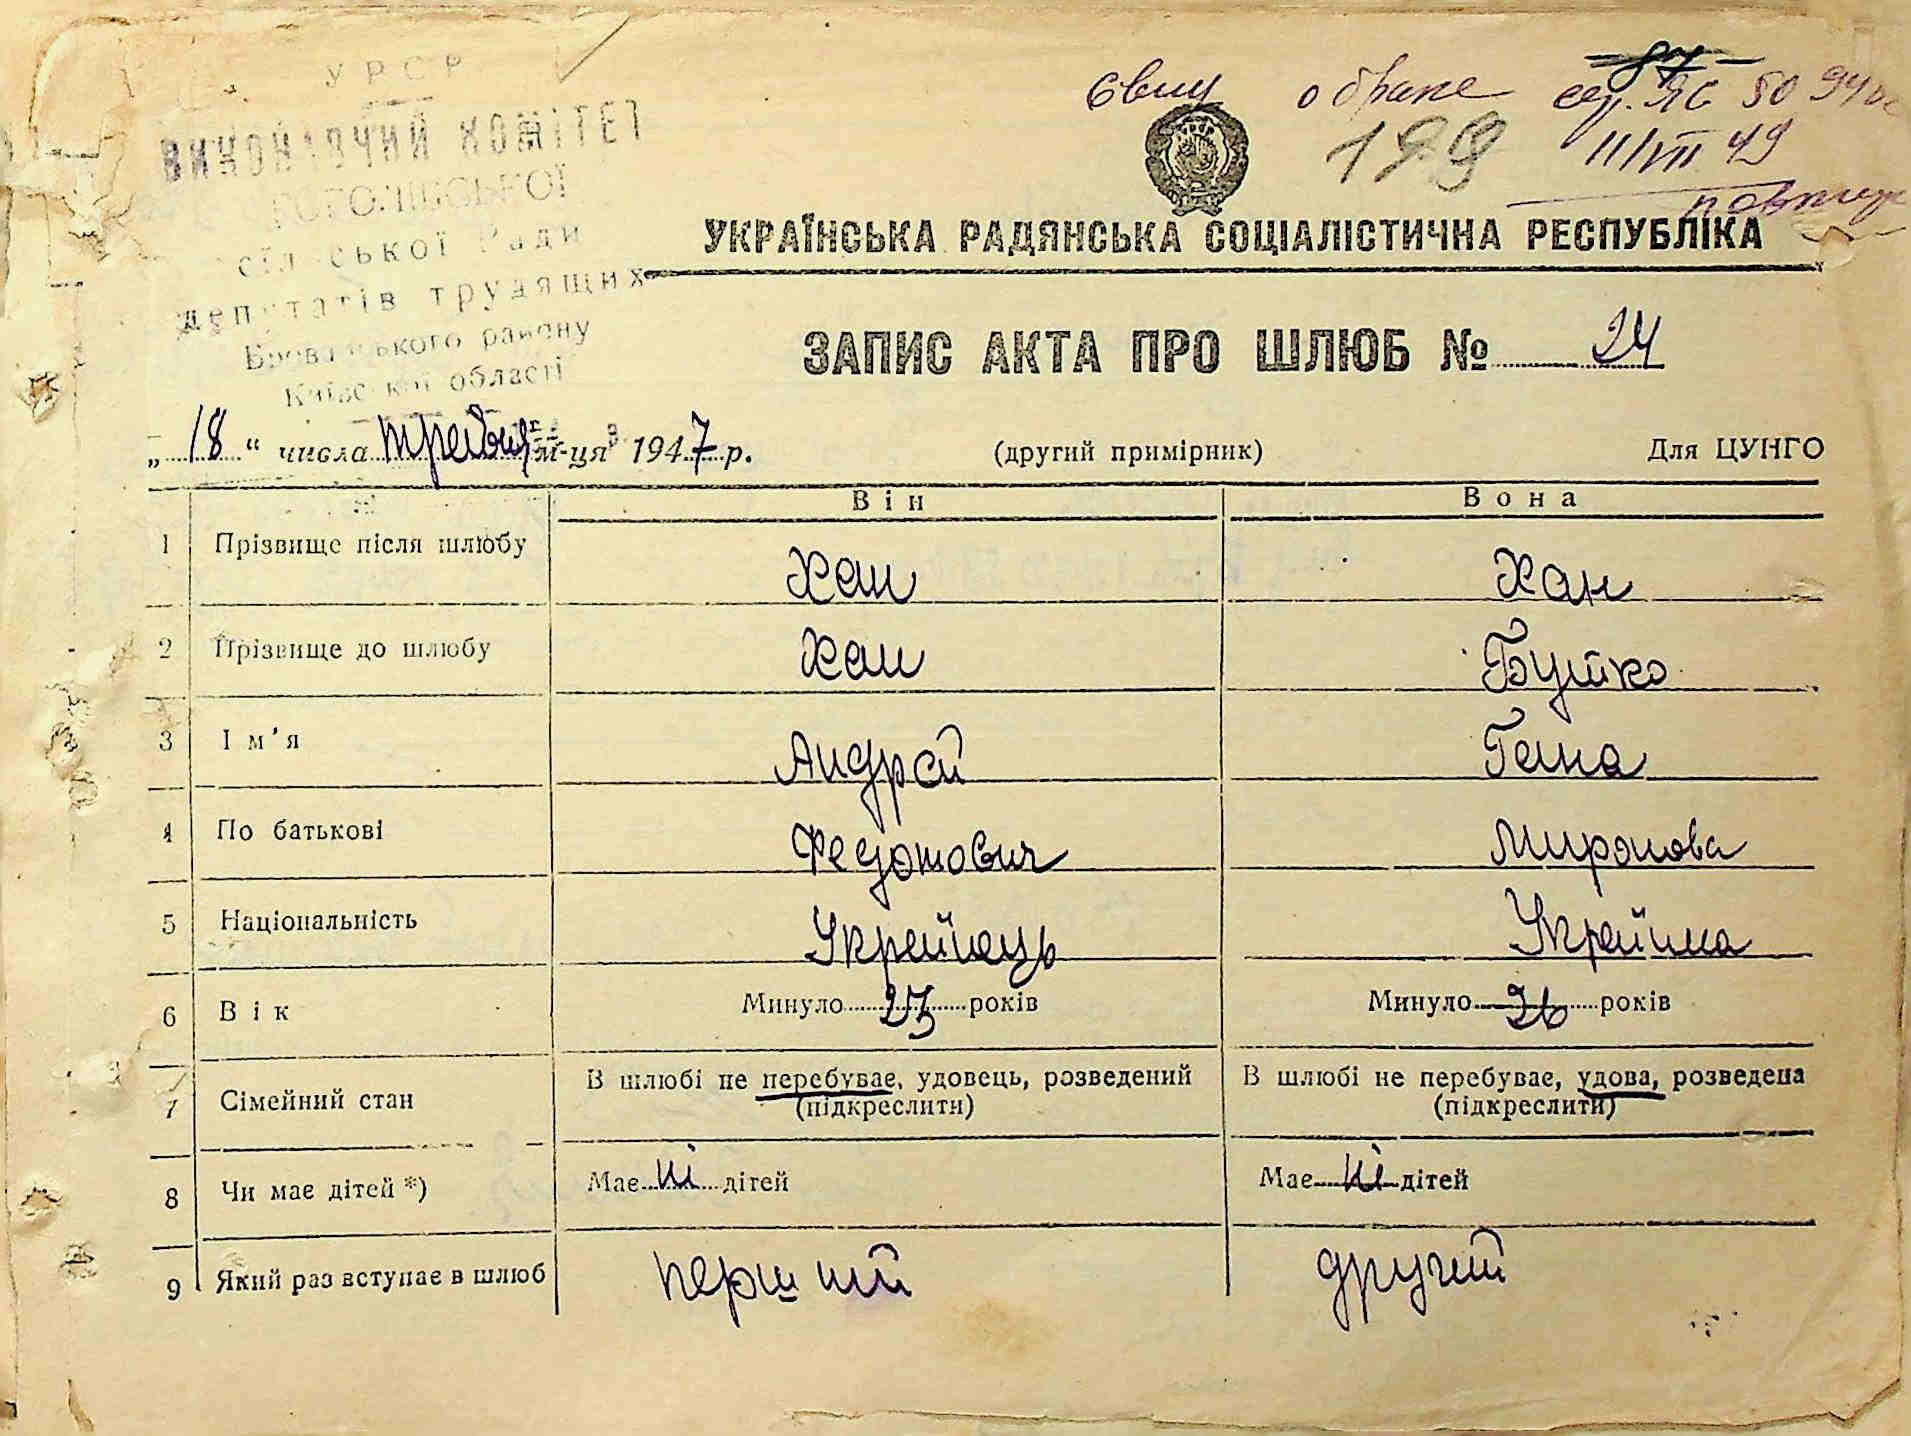 УРСР
ВИКОНАВЧИЙ КОМІТЕТ
сільської Ради
депутатів трудящих
Броварського району
Київської області
87
Свид о браке сер. ЯС
199
11/VII 49
УКРАЇНСЬКА РАДЯНСЬКА СОЦІАЛІСТИЧНА РЕСПУБЛІКА
ЗАПИС АКТА ПРО ШЛЮБ № 24
„ 18 “ числа травня м-ця 1947 р. (другий примірник) Для ЦУНГО
Він Вона
1 Прізвище після шлюбу Хан Хан
2 Прізвище до шлюбу Хан Буйко
3 Ім’я Андрей Гана
4 По батькові Федотович Миронова
5 Національність Українець Українка
6 Вік Минуло 23 років Минуло 26 років
7 Сімейний стан В шлюбі не перебуває, удовець, розведений В шлюбі не перебуває, удова, розведена
(підкреслити) (підкреслити)
8 Чи має дітей *) Має ні дітей Має ні дітей
9 Який раз вступає в шлюб перший другий